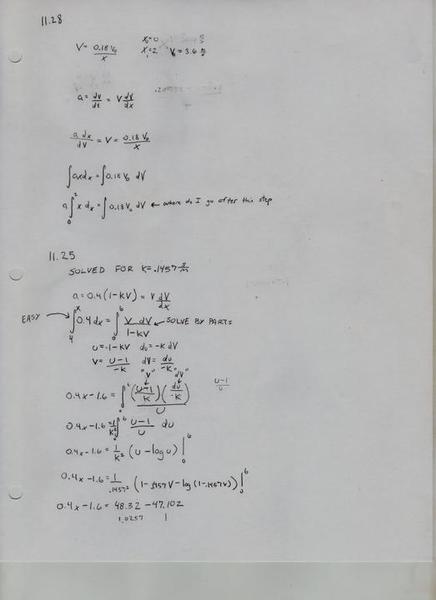 11.28
V = 0.18 V₀ / x
x₀=0
x₁=2 V₀ = 3.6 m/s
a = dv/dt = V dV/dx
a dx/dV = V = 0.18 V₀/x
∫axdx = ∫0.18 V₀ dV
a∫₀² x dx = ∫0.18V₀ dV ← where do I go after this step
11.25
SOLVED FOR K=.1457 s/m
a = 0.4(1-KV) = V dV/dx
EASY → ∫₄ˣ 0.4 dx = ∫₀⁶ V dV / 1-KV ← SOLVE BY PARTS
u=-1-KV du=-K dV
V = u-1/-K dV = du/-K
"V" "dV"
0.4x-1.6 = ∫ (u-1/K)(du/-K) / u
u-1/u
0.4x-1.6 = 1/K² ∫₀⁶ u-1/u du
0.4x-1.6 = 1/K² (u-log u)|₀⁶
0.4x-1.6 = 1/.1457² (1-.1457V-log(1-.1457V))|₀⁶
0.4x-1.6 = 48.32 -47.102
1.0257 1